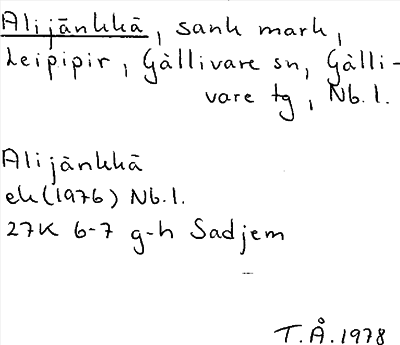 Alijänkkä, sank mark,
Leipipir, Gällivare sn, Gälli-
vare tg, Nb. l.
Alijänkkä
ek (1976) Nb. l.
27K 6-7 g-h Sadjem
T. Å. 1978